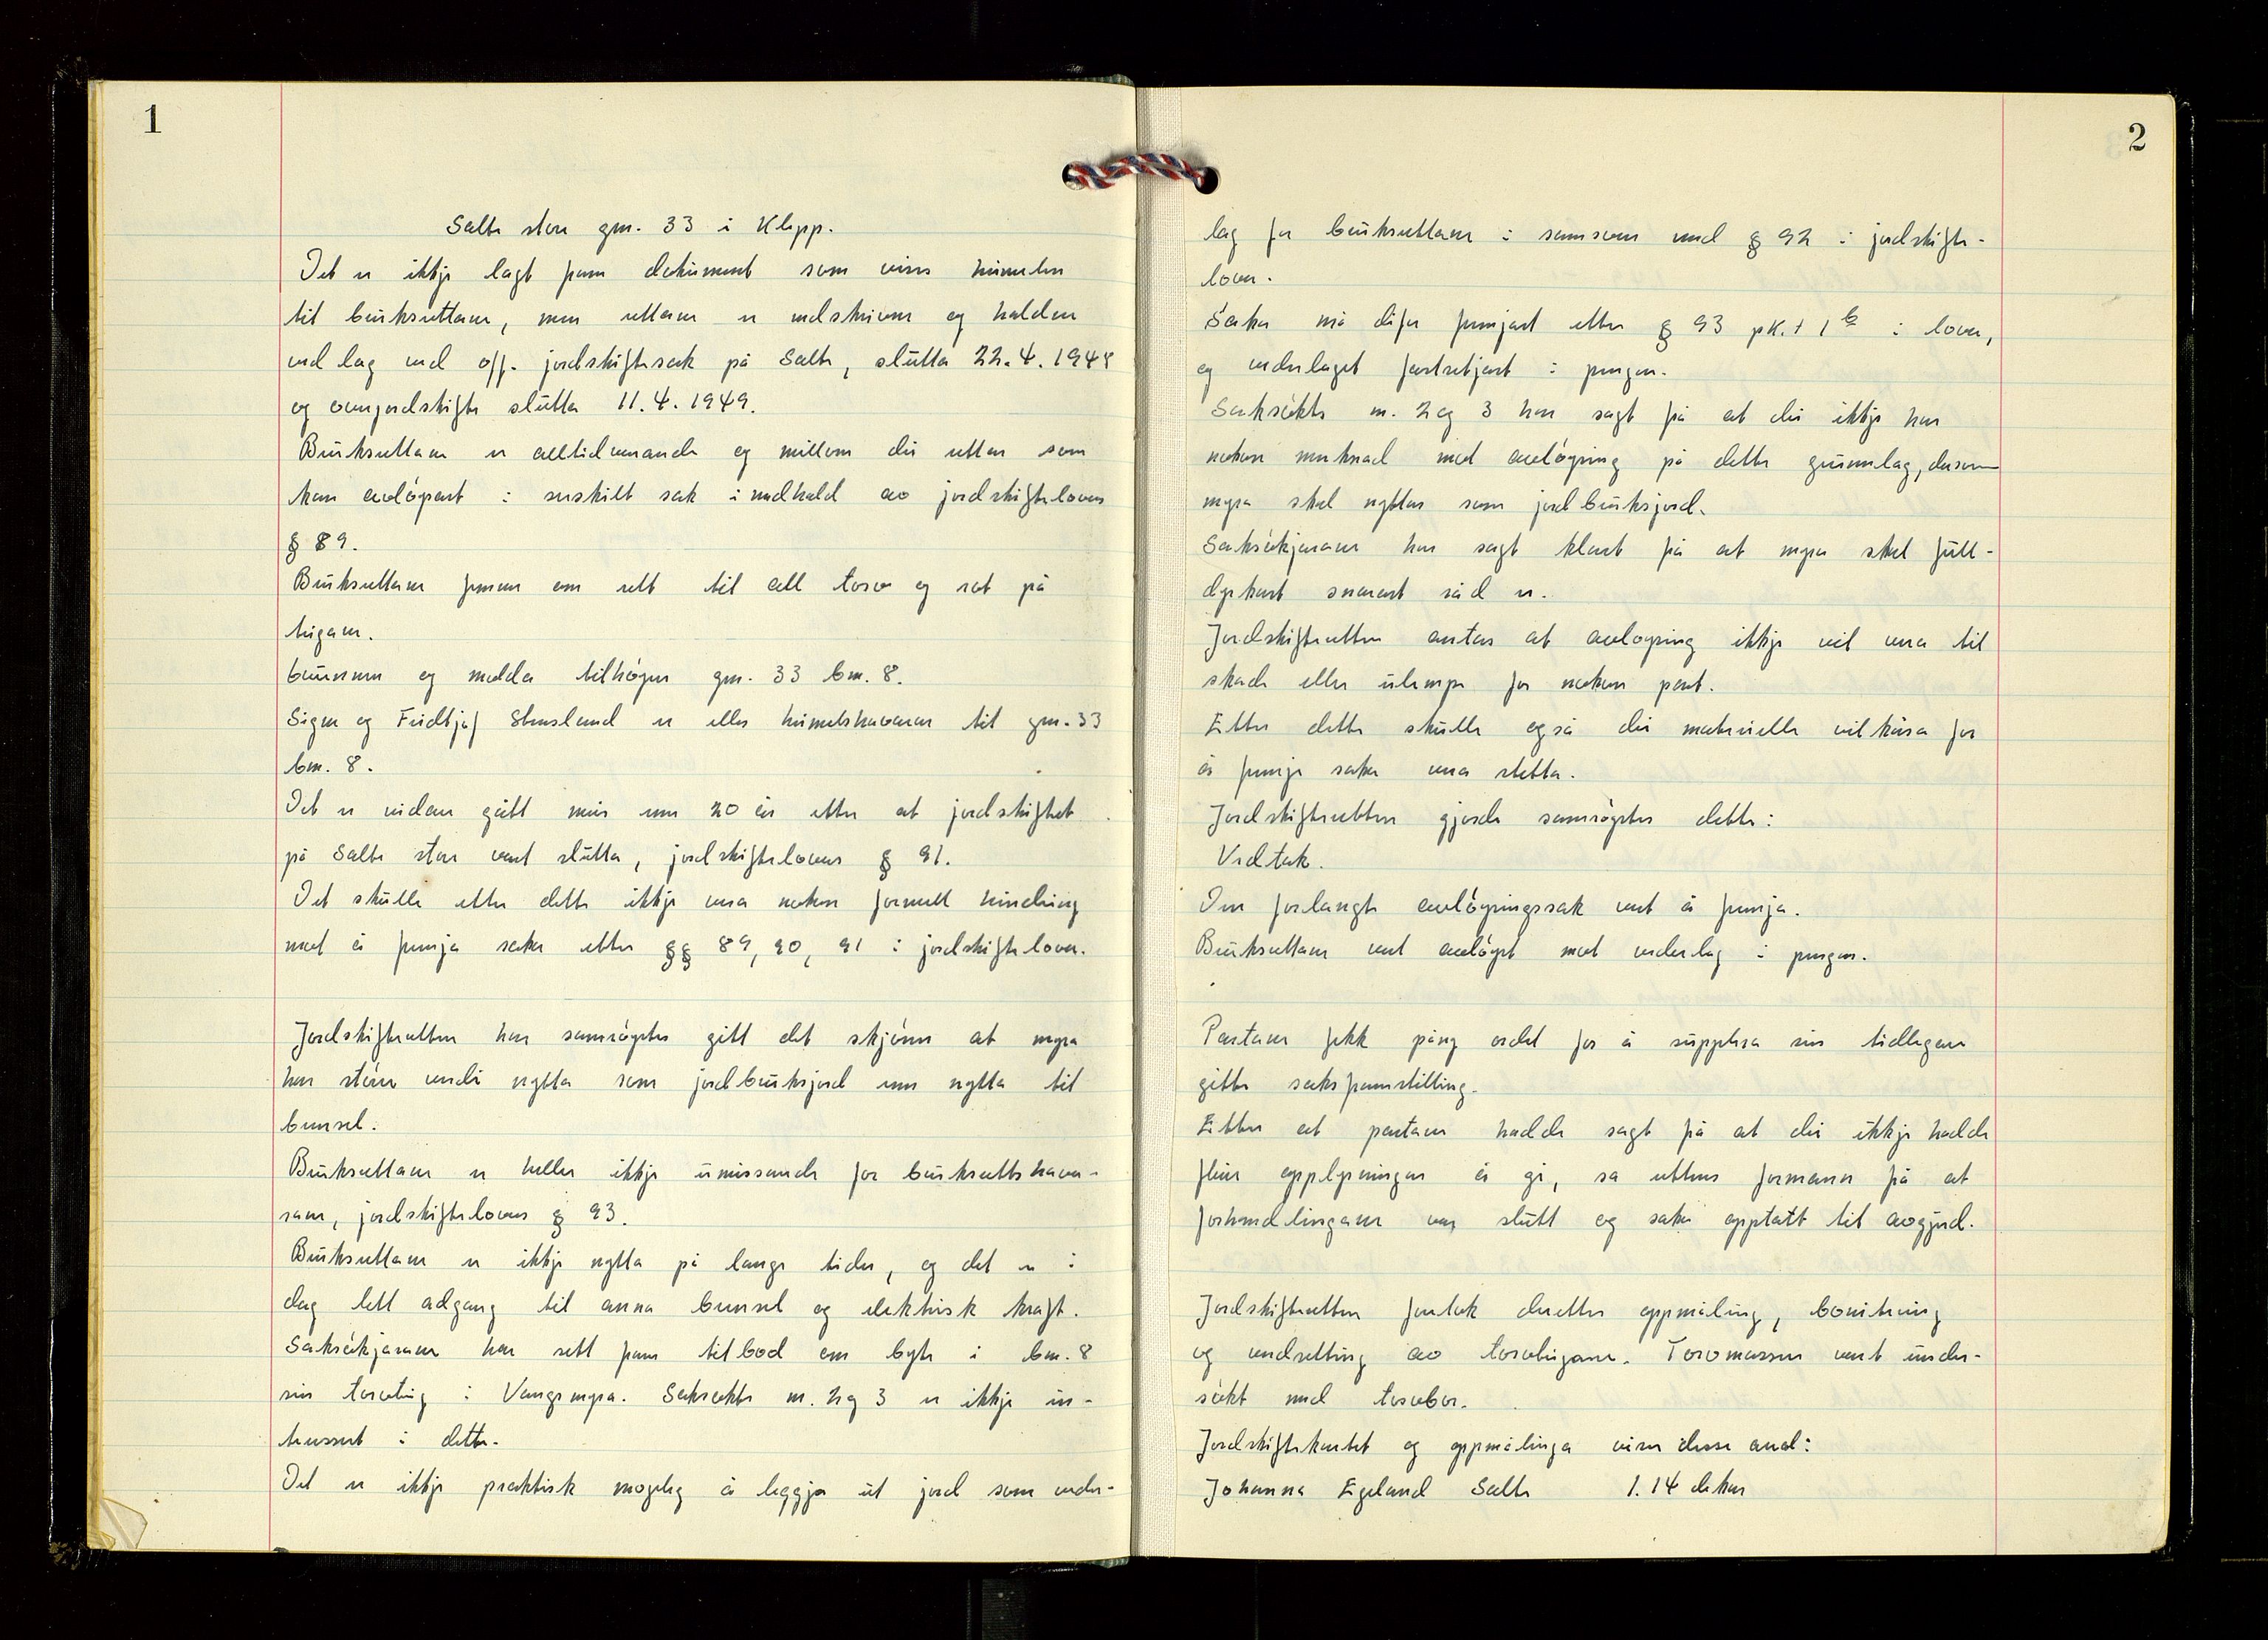 1
Salte store gnr. 33 i Klepp.
Det er ikkje lagt fram dokument som viser heimelen
til bruksrettane, men rettane er nedskrivne og haldne
ved lag ved off. jordskiftesak på Salte, slutta 22.4.1948
og omjordskifte slutta 11.4.1949.
Bruksrettane er alltidvarande og millom dei rettar som
kan avløysast i serskilt sak i medhald av jordskiftelovens
§ 89.
Bruksrettane femner om rett til all torv og rot på
teigane.
Grunnen og molda tilhøyrer gnr. 33 bnr. 8.
Signe og Fridtjof Stensland er eller heimelshavarar til gnr. 33
bnr. 8.
Det er vidare gått meir enn 20 år etter at jordskiftet
på Salte store vart slutta, jordskiftelovens § 91.
Det skulle etter dette ikkje vera nokon formell hindring
mot å fremja saka etter §§ 89, 90, 91 i jordskiftelova.
Jordskifteretten har samrøystes gitt det skjønn at myra
har større verdi nytta som jordbruksjord enn nytta til
brensel.
Bruksrettane er heller ikkje umissande for bruksrettshava-
rane, jordskiftelovens § 93.
Bruksrettane er ikkje nytta på lange tider, og det er i
dag lett adgang til anna brensel og elektrisk kraft.
Saksøkjarane har sett fram tilbod om byte i bnr. 8
sin torvteig i Vangsmyra. Saksøkte nr. 2 og 3 er ikkje in-
teressert i dette.
Det er ikkje praktisk mogleg å leggja ut jord som veder-
2
lag for bruksrettane i samsvar med § 92 i jordskifte-
lova.
Saka må difor fremjast etter § 93 pkt 1 b i lova,
og vederlaget fastsetjast i pengar.
Saksøkte nr. 2 og 3 har sagt frå at dei ikkje har
nokon merknad mot avløysing på dette grunnlag, dersom
myra skal nyttas som jordbruksjord.
Saksøkjarane har sagt klart frå at myra skal full-
dyrkast snarast råd er.
Jordskifteretten antar at avløysing ikkje vil vera til
skade eller ulempe for nokon part.
Etter dette skulle også dei materielle vilkåra for
å fremje saka vera stetta.
Jordskifteretten gjorde samrøystes dette:
Vedtak.
Den forlangte avløysingssak vert å fremja.
Bruksrettane vert avløyst mot vederlag i pengar.
Partane fekk påny ordet for å supplera sin tidlegare
gitte saksframstilling.
Etter at partane hadde sagt frå at dei ikkje hadde
fleire opplysningar å gi, sa rettens formann frå at
forhandlingane var slutt og saka opptatt til avgjerd.
Jordskifteretten foretok deretter oppmåling, bonitering
og verdsetting av torvteigane. Torvmassen vart under-
søkt med torvbor.
Jordskiftekartet og oppmålinga viser desse areal:
Johanna Egeland Salte 1.14 dekar